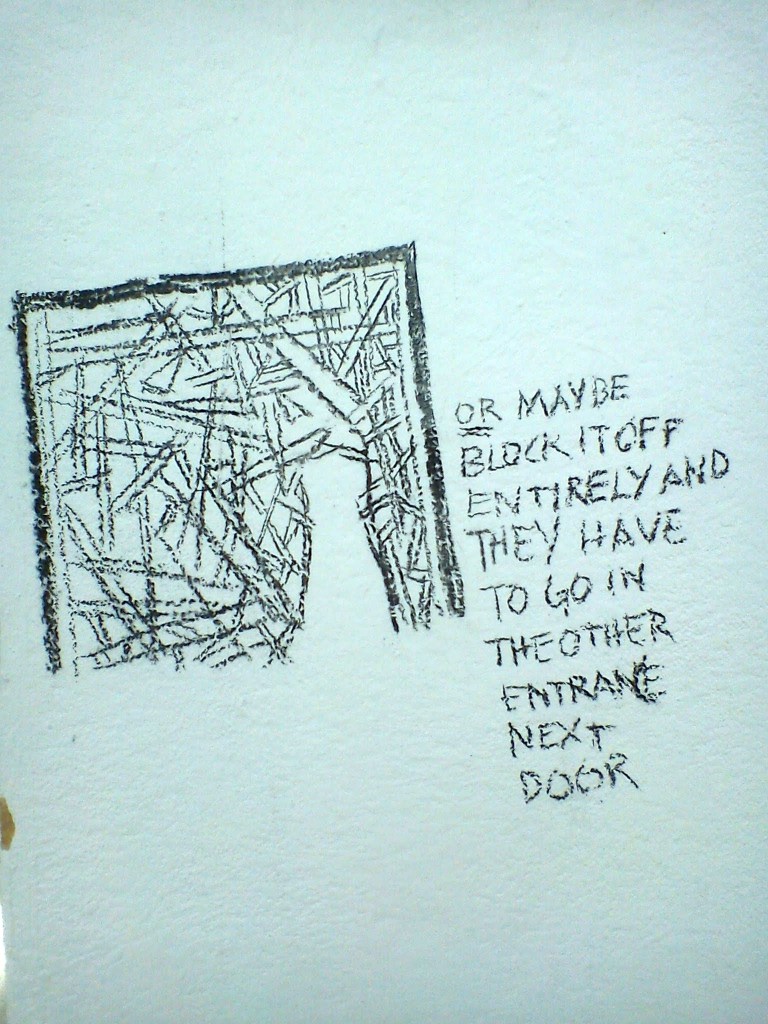 OR MAYBE
BLOCK IT OFF
ENTIRELY AND
THEY HAVE
TO GO IN
THE OTHER
ENTRANCE
NEXT
DOOR